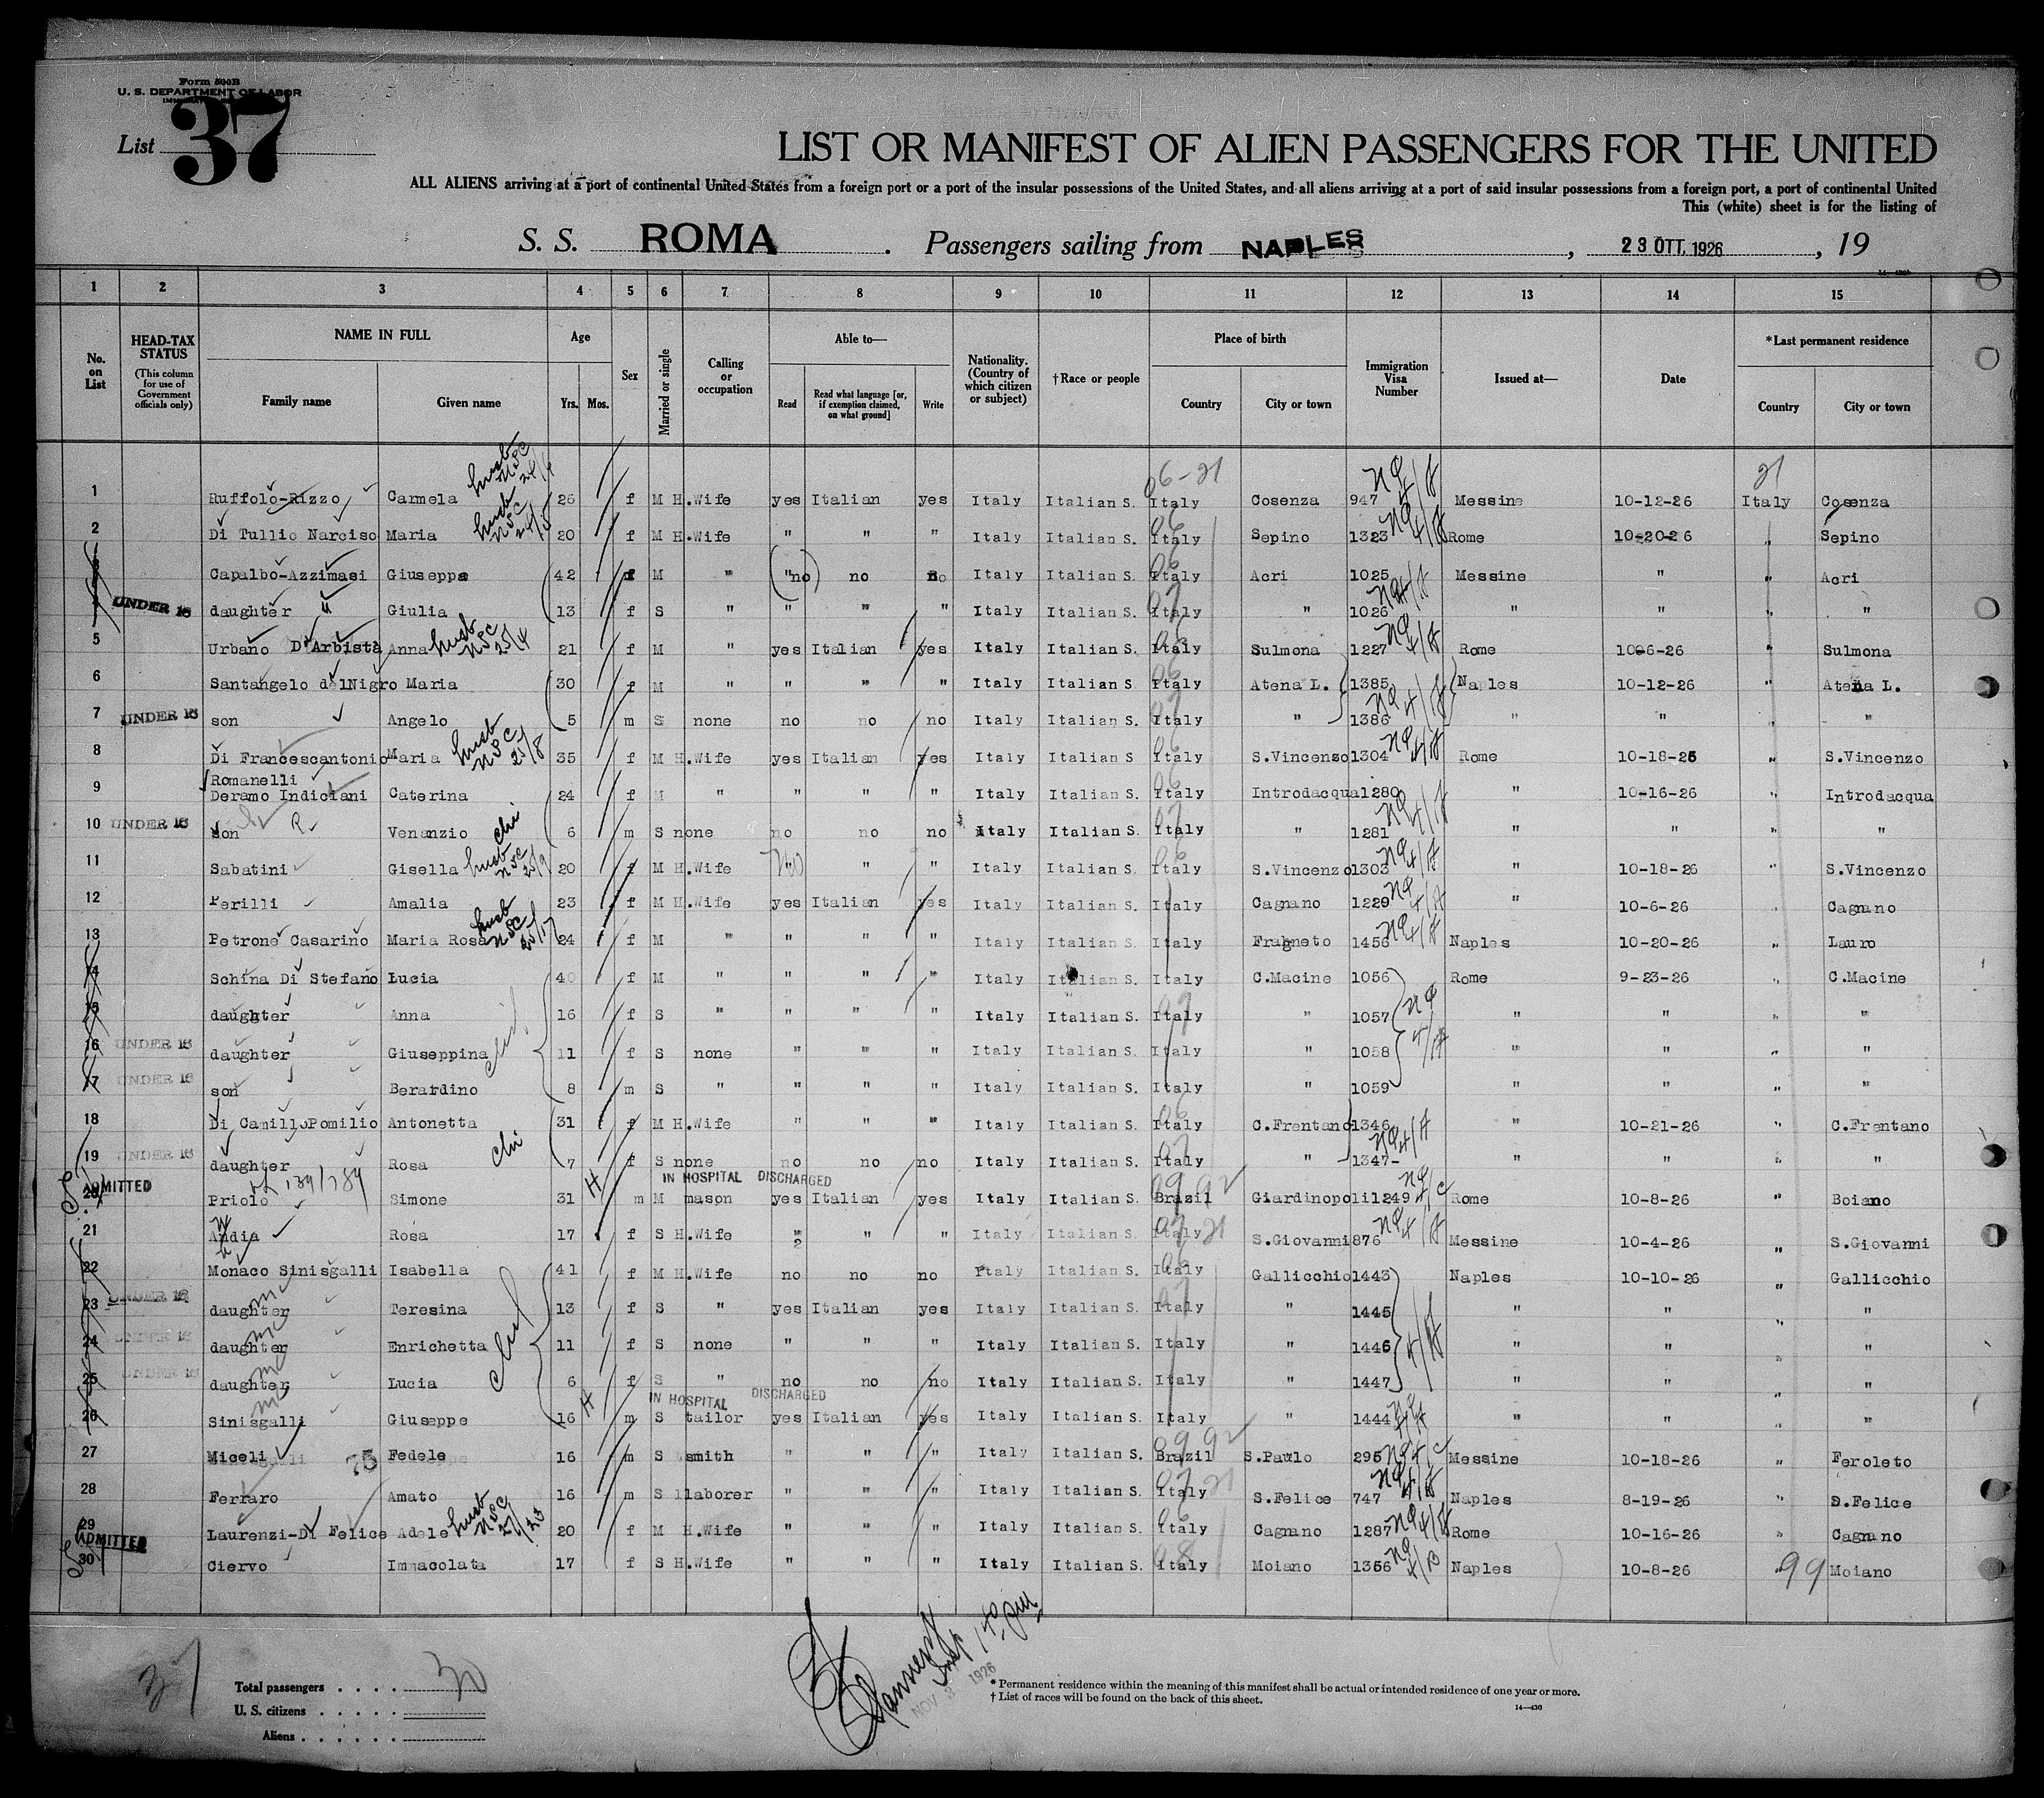 Form 500B
U. S. DEPARTMENT OF LABOR
List 37
LIST OR MANIFEST OF ALIEN PASSENGERS FOR THE UNITED
ALL ALIENS arriving at a port of continental United States from a foreign port or a port of the insular possessions of the United States, and all aliens arriving at a port of said insular possessions from a foreign port, a port of continental United
This (white) sheet is for the listing of
S. S. ROMA. Passengers sailing from NAPLES, 23 OTT. 1926, 19
1 2 3 4 5 6 7 8 9 10 11 12 13 14 15
No. on List
HEAD-TAX STATUS (This column for use of Government officials only)
NAME IN FULL
Family name Given name
Age
Yrs. Mos.
Sex
Married or single
Calling or occupation
Able to—
Read Read what language [or, if exemption claimed, on what ground] Write
Nationality. (Country of which citizen or subject)
†Race or people
Place of birth
Country City or town
Immigration Visa Number
Issued at—
Date
*Last permanent residence
Country City or town
06-21 21
1 Ruffolo-Rizzo Carmela husb 26 f M H.Wife yes Italian yes Italy Italian S. Italy Cosenza 947 Messine 10-12-26 Italy Cosenza
2 Di Tullio Narciso Maria husb 20 f M H.Wife " " " Italy Italian S. Italy Sepino 1323 Rome 10-20-26 " Sepino
3 Capalbo-Azzimasi Giuseppa 42 f M " "no no no Italy Italian S. Italy Acri 1025 Messine " " Acri
4 UNDER 16 daughter " Giulia 13 f S " " " " Italy Italian S. Italy " 1026 " " " "
5 Urbano D'Arbista Anna husb 21 f M " yes Italian yes Italy Italian S. Italy Sulmona 1227 Rome 10-6-26 " Sulmona
6 Santangelo delNigro Maria 30 f M " " " " Italy Italian S. Italy Atena L. 1385 Naples 10-12-26 " Atena L.
7 UNDER 16 son Angelo 5 m S none no no no Italy Italian S. Italy " 1386 " " " "
8 Di Francescantonio Maria husb 35 f M H.Wife yes Italian yes Italy Italian S Italy S.Vincenzo 1304 Rome 10-18-26 " S.Vincenzo
Romanelli
9 Deramo Indiciani Caterina 24 f M " " " " Italy Italian S. Italy Introdacqua 1280 " 10-16-26 " Introdacqua
10 UNDER 16 son R Venanzio chi 6 m S none no no no Italy Italian S. Italy " 1281 " " " "
11 Sabatini Gisella husb 20 f M H.Wife " " " Italy Italian S. Italy S.Vincenzo 1303 " 10-18-26 " S.Vincenzo
12 Perilli Amalia 23 f M H.Wife yes Italian yes Italy Italian S. Italy Cagnano 1229 " 10-6-26 " Cagnano
13 Petrone Casarino Maria Rosa husb 24 f M " " " " Italy Italian S. Italy Fragneto 1456 Naples 10-20-26 " Lauro
14 Schina Di Stefano Lucia 40 f M " " " " Italy Italian S. Italy C.Macine 1056 Rome 9-23-26 " C.Macine
15 daughter Anna 16 f S " " " " Italy Italian S. Italy " 1057 " " " "
16 UNDER 16 daughter Giuseppina 11 f S none " " " Italy Italian S. Italy " 1058 " " " "
17 UNDER 16 son Berardino 8 m S " " " " Italy Italian S. Italy " 1059 " " " "
18 Di CamilloPomilio Antonetta 31 f M H.Wife " " " Italy Italian S. Italy C.Frentano 1346 " 10-21-26 " C.Frentano
19 UNDER 16 daughter Rosa chi 7 f S none no no no Italy Italian S. Italy " 1347- " " " "
IN HOSPITAL DISCHARGED
20 ADMITTED Priolo Simone 31 m M mason yes Italian yes Italy Italian S. Brazil Giardinopoli 1249 Rome 10-8-26 " Boiano
21 Andia Rosa 17 f S H.Wife " " " Italy Italian S. Italy S.Giovanni 876 Messine 10-4-26 " S.Giovanni
22 Monaco Sinisgalli Isabella 41 f M H.Wife no no no Italy Italian S. Italy Gallicchio 1443 Naples 10-10-26 " Gallicchio
23 UNDER 16 daughter Teresina 13 f S " yes Italian yes Italy Italian S. Italy " 1445 " " " "
24 UNDER 16 daughter Enrichetta 11 f S none " " " Italy Italian S. Italy " 1446 " " " "
25 UNDER 16 daughter Lucia 6 f S " no no no Italy Italian S. Italy " 1447 " " " "
IN HOSPITAL DISCHARGED
26 Sinisgalli Giuseppe 16 m S tailor yes Italian yes Italy Italian S. Italy " 1444 " " " "
27 Miceli 75 Fedele 16 m S smith " " " Italy Italian S. Brazil S.Paulo 295 Messine 10-18-26 " Feroleto
28 Ferraro Amato 16 m S laborer " " " Italy Italian S. Italy S.Felice 747 Naples 8-19-26 " S.Felice
29 Laurenzi-Di Felice Adele husb 20 f M H.Wife " " " Italy Italian S. Italy Cagnano 1287 Rome 10-16-26 " Cagnano
30 ADMITTED Ciervo Immacolata 17 f S H.Wife " " " Italy Italian S. Italy Moiano 1356 Naples 10-8-26 " 99 Moiano
Total passengers 30
U. S. citizens
Aliens
Insp
NOV 3 1926
* Permanent residence within the meaning of this manifest shall be actual or intended residence of one year or more.
† List of races will be found on the back of this sheet.
14—430